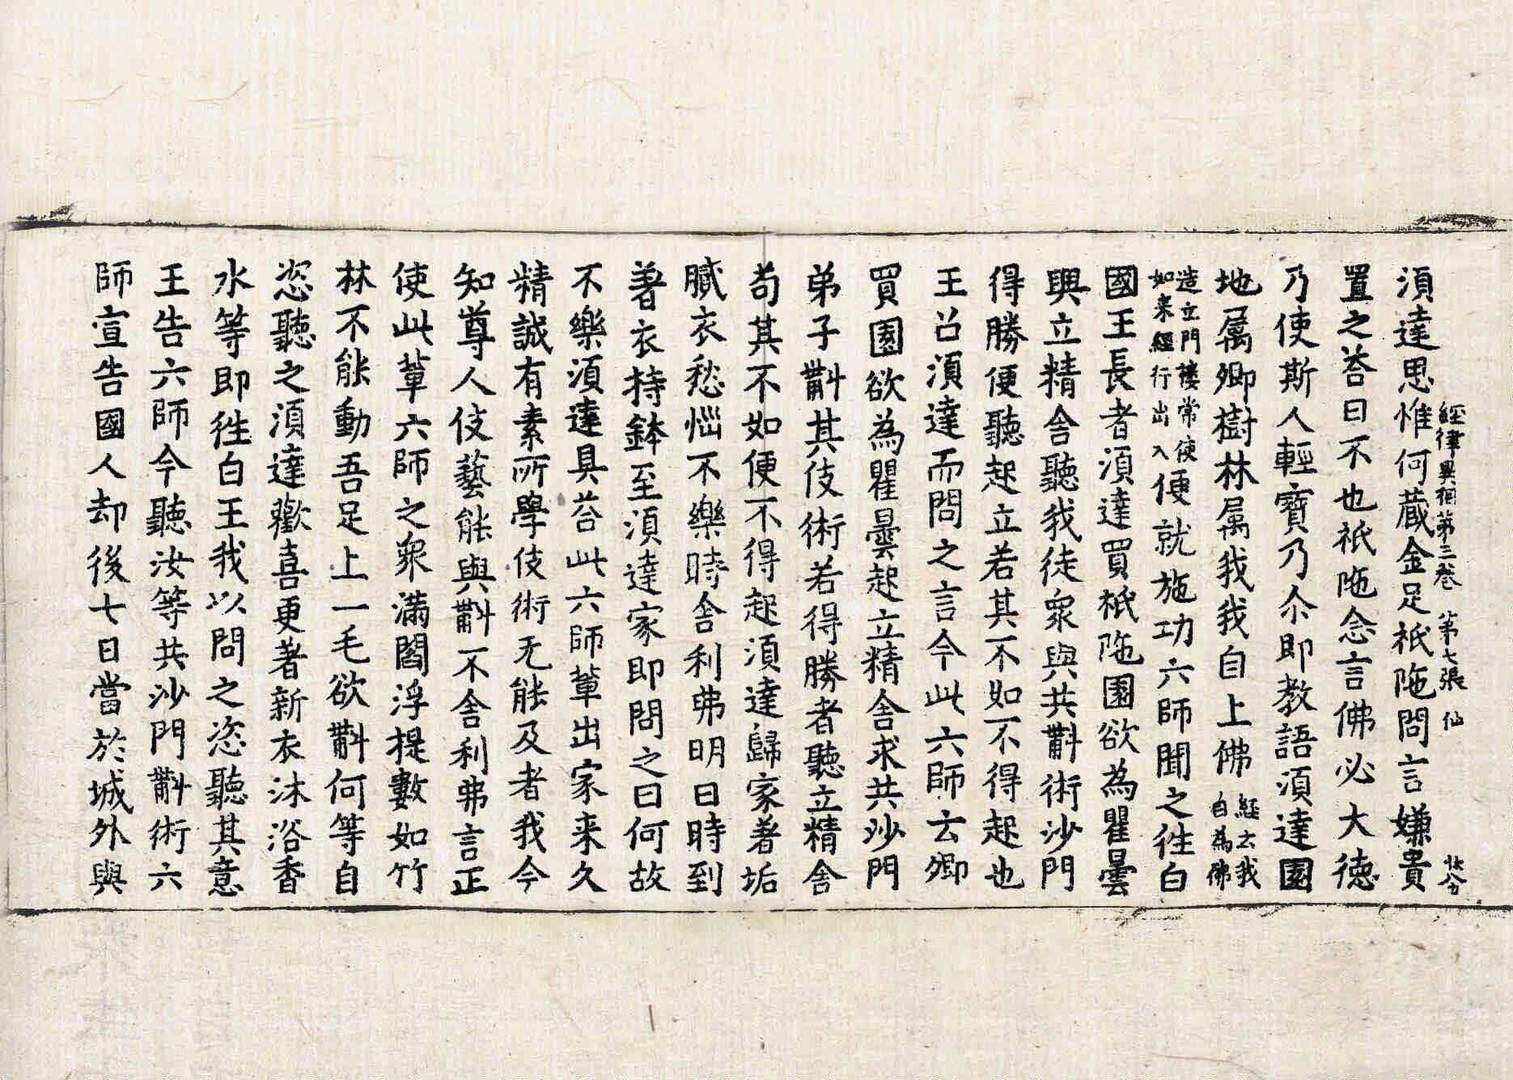 經律異相第三卷 第七張 仙
須達思惟何藏金足祇陁問言嫌貴
置之荅曰不也祇陁念言佛必大德
乃使斯人輕寶乃尒即教語須達園
地属卿樹林属我我自上佛經云我自為佛
造立門樓常使如来經行出入便就施功六師聞之往白
國王長者須達買祇陁園欲為瞿曇
興立精舍聽我徒衆與共㪺術沙門
得勝便聽起立若其不如不得起也
王召須達而問之言今此六師云卿
買園欲為瞿曇起立精舍求共沙門
弟子㪺其伎術若得勝者聽立精舍
苟其不如便不得起須達歸家著垢
膩衣愁惱不樂時舍利弗明日時到
著衣持鉢至須達家即問之曰何故
不樂須達具荅此六師軰出家来久
精誠有素所學伎術无能及者我今
知尊人伎藝能與㪺不舍利弗言正
使此軰六師之衆滿閻浮提數如竹
林不能動吾足上一毛欲㪺何等自
恣聽之須達歡喜更著新衣沐浴香
水等即往白王我以問之恣聽其意
王告六師今聽汝等共沙門㪺術六
師宣告國人却後七日當於城外與